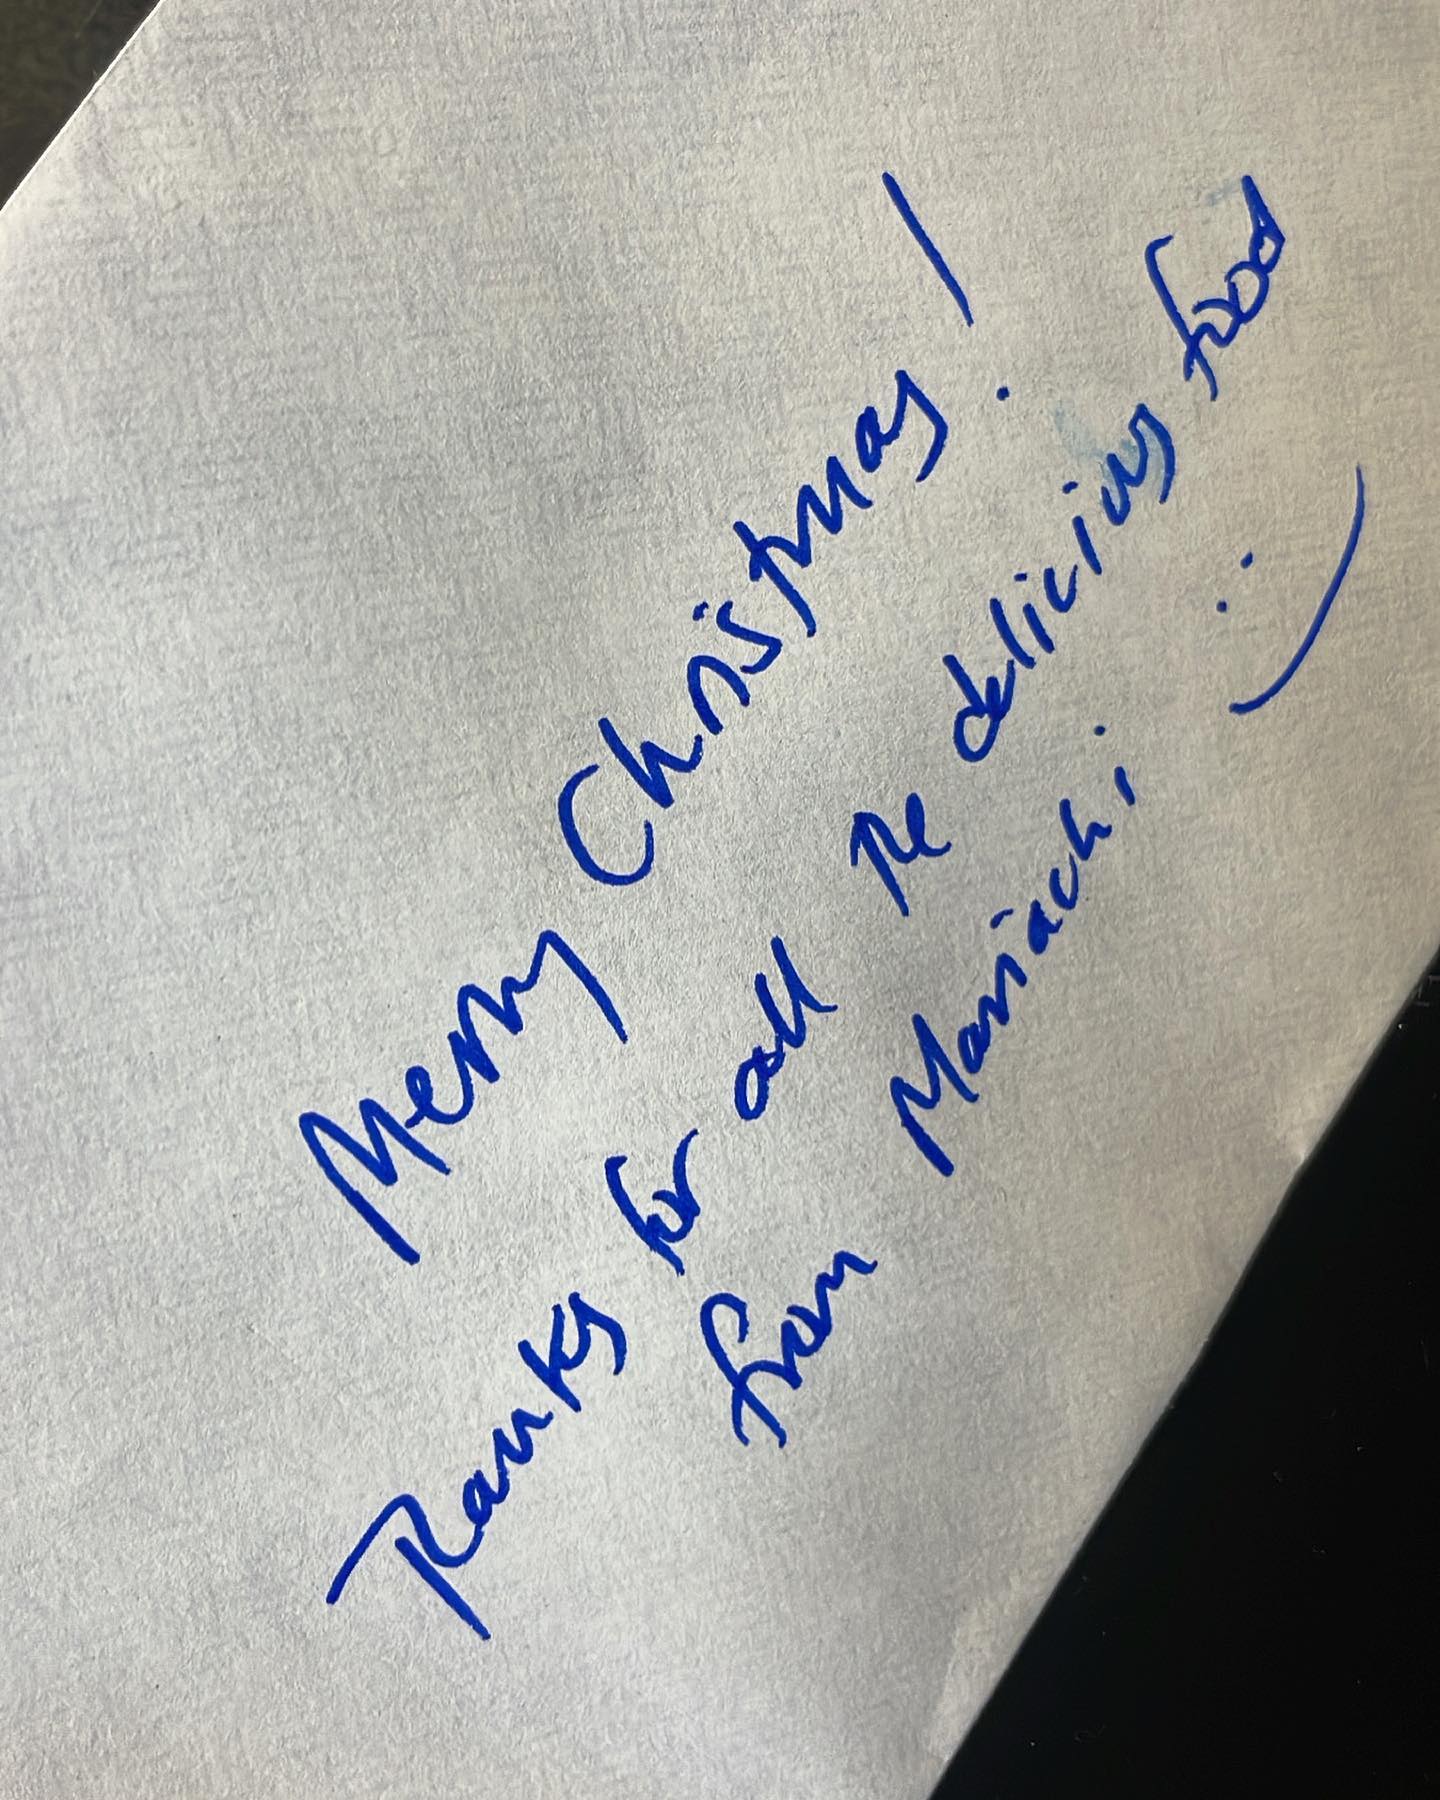 Merry Christmas!
Thanks for all the delicious food
from Mariachi :)